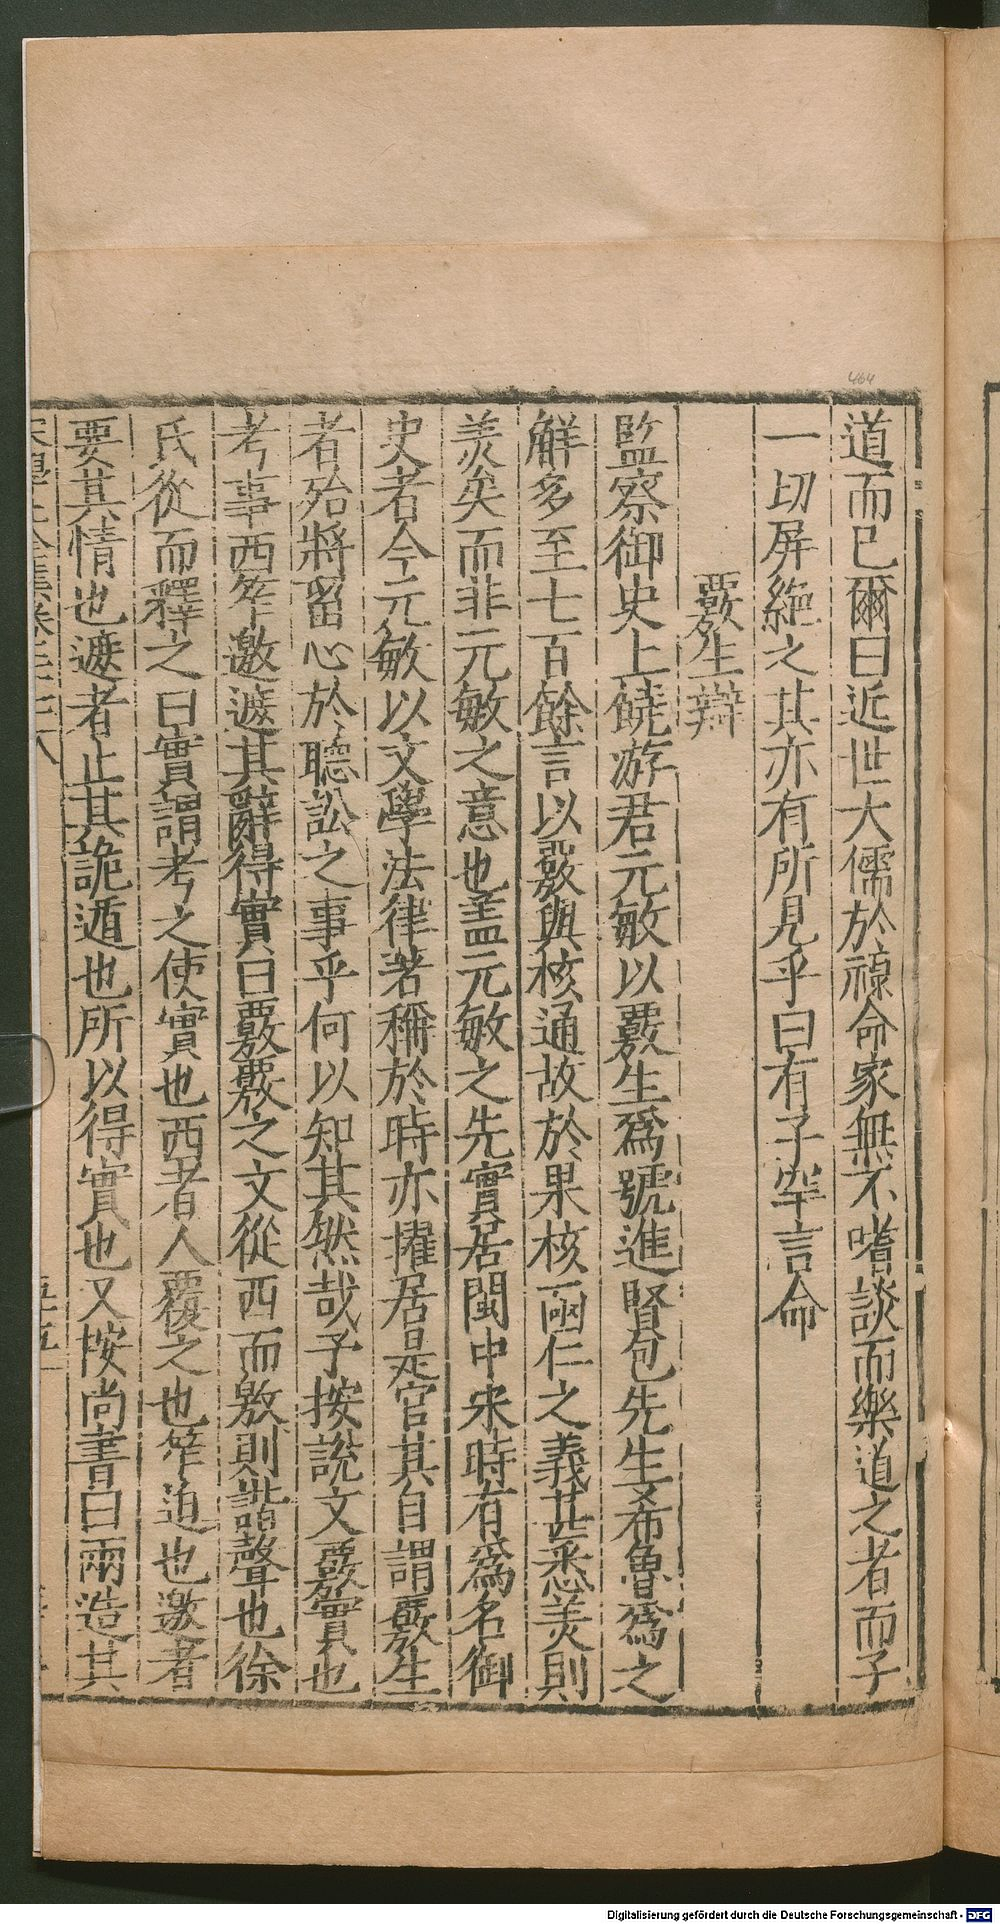 464
道而已爾曰近世大儒於祿命家無不嗜談而樂道之者而子
一切屏絶之其亦有所見乎曰有子罕言命
覈生辯
監察御史上饒游君元敏以覈生爲號進賢包先生希魯爲之
解多至七百餘言以覈與核通故於果核函仁之義甚悉羙則
羙矣而非元敏之意也盖元敏之先實居閩中宋時有爲名御
史者今元敏以文學法律著稱於時亦擢居是官其自謂覈生
者殆將留心於聽訟之事乎何以知其然哉予按說文覈實也
考事西笮邀遮其辭得實曰覈覈之文從西而敫則諧聲也徐
氏從而釋之曰實謂考之使實也西者人覆之也笮迫也邀者
要其情也遮者止其詭遁也所以得實也又按尚書曰兩造其
Digitalisierung gefördert durch die Deutsche Forschungsgemeinschaft - DFG